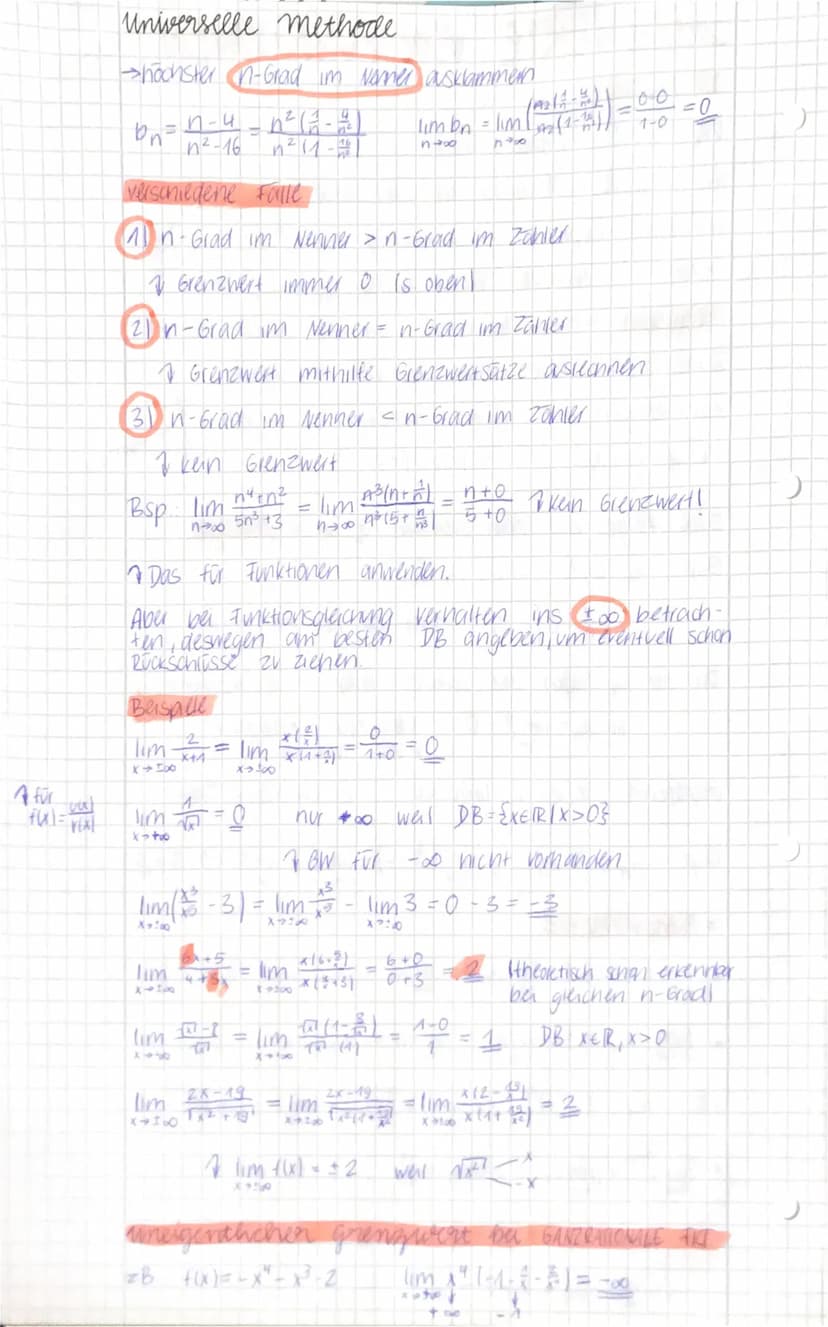 Universelle Methode
→ höchster n-Grad im Nenner ausklammern
bn = (n-4)/(n²-16) = n²(1/n - 4/n²)/n²(1 - 16/n²)   lim n→∞ bn = lim n→∞ (n²(1/n - 4/n²)/n²(1 - 16/n²)) = (0-0)/(1-0) = 0
verschiedene Fälle
1) n-Grad im Nenner > n-Grad im Zähler
↳ Grenzwert immer 0 (s oben)
2) n-Grad im Nenner = n-Grad im Zähler
↳ Grenzwert mithilfe Grenzwertsätze ausrechnen
3) n-Grad im Nenner < n-Grad im Zähler
↳ kein Grenzwert
Bsp.: lim n→∞ (n⁴+n²)/(5n³+3) = lim n→∞ n³(n+1/n)/n³(5+n/n³) = (n+0)/(5+0) ↳ kein Grenzwert!
↳ Das für Funktionen anwenden.
Aber bei Funktionsgleichung Verhalten ins ±∞ betrach-
ten, deswegen am besten DB angeben, um eventuell schon
Rückschlüsse zu ziehen.
Beispiele
lim x→±∞ 2/(x+1) = lim x→±∞ x(2/x)/x(1+1/x) = 0/(1+0) = 0
↳ für
f(x) = u(x)/v(x)
lim x→+∞ 1/√x = 0   nur +∞ weil DB = {x∈ℝ | x>0}
↳ GW für -∞ nicht vorhanden
lim x→±∞ (x³/x⁵ - 3) = lim x→±∞ x³/x⁵ - lim x→±∞ 3 = 0 - 3 = -3
lim x→±∞ (6x+5)/(4+3x) = lim x→±∞ x(6+5/x)/x(4/x+3) = (6+0)/(0+3) = 2 (theoretisch schon erkennbar
bei gleichen n-Grad)
lim x→+∞ (√x-8)/√x = lim x→+∞ √x(1-8/√x)/√x(1) = (1-0)/1 = 1   DB: x∈ℝ, x>0
lim x→±∞ (2x-19)/√(x²+19) = lim x→±∞ (2x-19)/√(x²(1+19/x²)) = lim x→±∞ x(2-19/x)/x(1+19/x²) = 2
↳ lim x→±∞ f(x) = ±2 weil √x² x
-x
uneigentlicher Grenzwert bei GANZRATIONALE FKT
zB f(x) = -x⁴ - x³ - 2   lim x→±∞ x⁴(-1 - 1/x - 2/x⁴) = -∞
+∞ -1